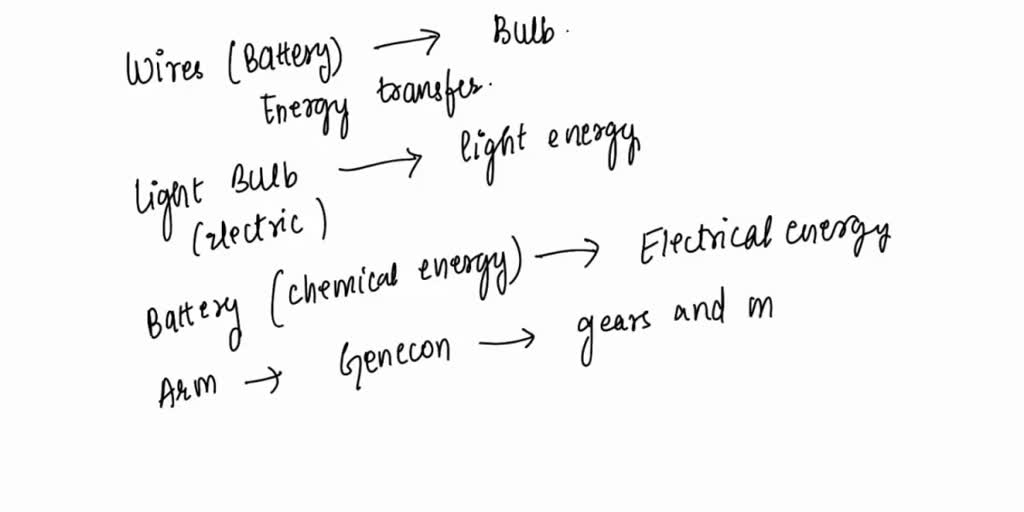 Wires (Battery) → Bulb.
Energy transfer.
Light Bulb → light energy
(electric)
Battery (chemical energy) → Electrical energy
Arm → Genecon → gears and m